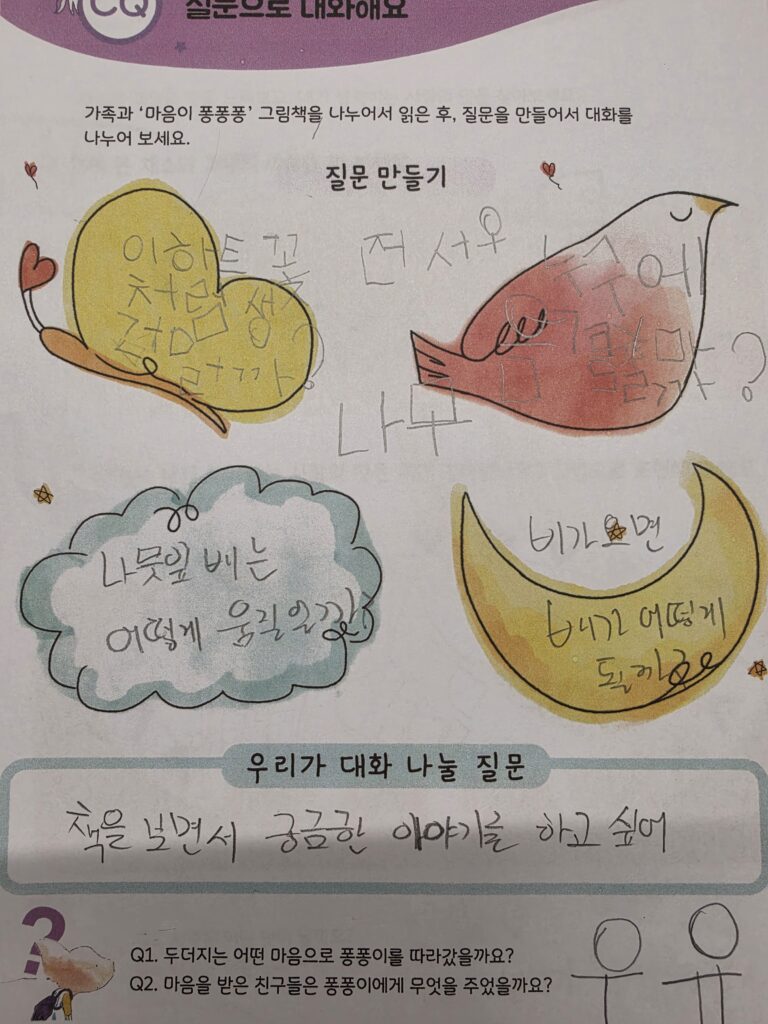 CQ 질문으로 대화해요
가족과 ‘마음이 퐁퐁퐁’ 그림책을 나누어서 읽은 후, 질문을 만들어서 대화를
나누어 보세요.
질문 만들기
이하트 꽃
처럼 생
겄
까?
전 서우 누구에
까?
나무
나뭇잎 배는
어떻게 움직일까?
비가 오면
배가 어떻게
될까?
우리가 대화 나눌 질문
책을 보면서 궁금한 이야기를 하고 싶어
?
Q1. 두더지는 어떤 마음으로 퐁퐁이를 따라갔을까요?
Q2. 마음을 받은 친구들은 퐁퐁이에게 무엇을 주었을까요?
우유